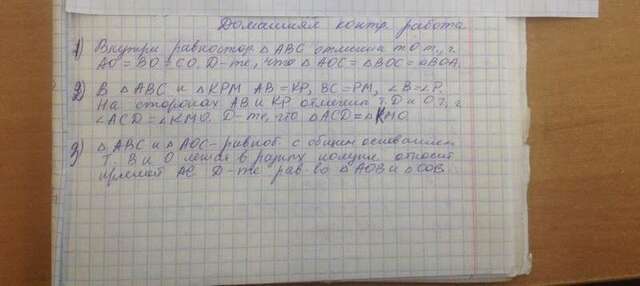 Домашняя контр. работа
1) Внутри равностор. △ABC отмечена т.О т., г.
AO = BO = CO. Д-те, что △AOC = △BOC = △BOA.
2) В △ABC и △KPM AB = KP, BC = PM, ∠B = ∠P.
На сторонах AB и KP отмечен т. D и O т., г.
∠ACD = ∠KMO. Д-те, что △ACD = △KMO
3) △ABC и △AOC - равноб. с общим основанием
Т. B и O лежат в разных полупл. относит.
прямой AC. Д-те рав-во △AOB и △COB.